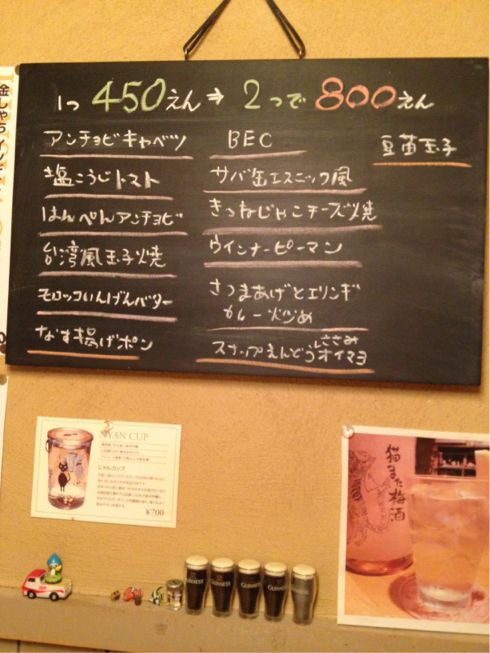 1つ 450えん → 2つで 800えん
アンチョビキャベツ
塩こうじトマト
はんぺんアンチョビ
台湾風玉子焼
モロッコいんげんバター
なす揚げポン
BEC
サバ缶エスニック風
きつねじゃこチーズ焼
ウインナーピーマン
さつまあげとエリンギ
カレー炒め
スナップえんどうとささみ
オイマヨ
豆苗玉子
金しゃち
NYAN CUP
にゃんカップ
¥700
猫また梅酒
GUINNESS
GUINNESS
GUINNESS
GUINNESS